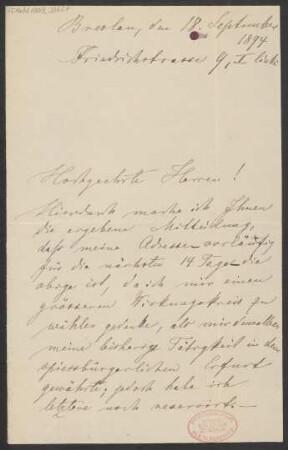 Breslau, den 18. September
1894
Friedrichstrasse 9, I links
Hochgeehrte Herren!
Hierdurch mache ich Ihnen
die ergebene Mitteilung,
daß meine Adresse vorläufig
für die nächsten 14 Tage die
obige ist, da ich mir einen
grösseren Wirkungskreis zu
wählen gedenke, als mir
meine bisherige Tätigkeit in dem
spiessbürgerlichen Erfurt
gewährte; jedoch habe ich
letztere noch reservirt.—